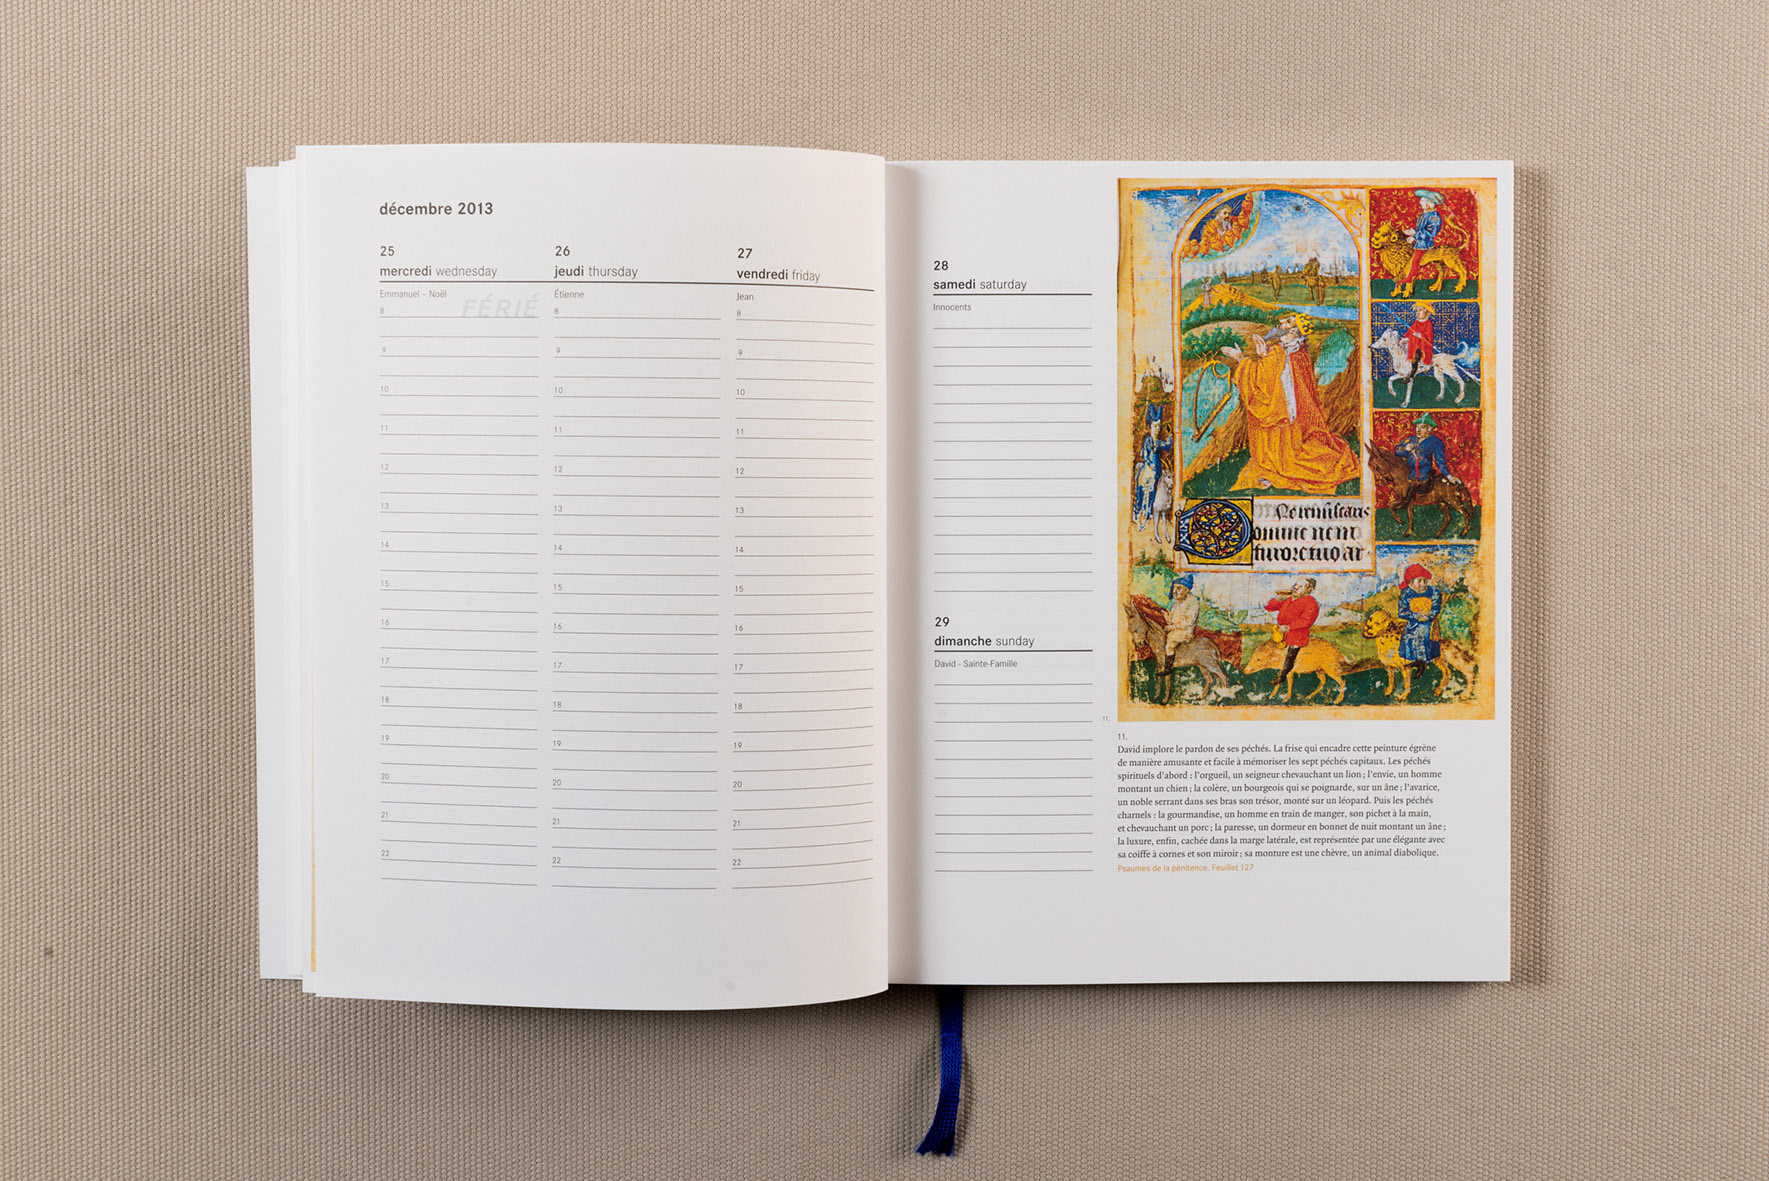 décembre 2013
25
mercredi wednesday
Emmanuel – Noël
FÉRIÉ
8
9
10
11
12
13
14
15
16
17
18
19
20
21
22
26
jeudi thursday
Étienne
8
9
10
11
12
13
14
15
16
17
18
19
20
21
22
27
vendredi friday
Jean
8
9
10
11
12
13
14
15
16
17
18
19
20
21
22
28
samedi saturday
Innocents
29
dimanche sunday
David - Sainte-Famille
omine ne in
furore tuo ar
11.
11.
David implore le pardon de ses péchés. La frise qui encadre cette peinture égrène
de manière amusante et facile à mémoriser les sept péchés capitaux. Les péchés
spirituels d'abord : l'orgueil, un seigneur chevauchant un lion ; l'envie, un homme
montant un chien ; la colère, un bourgeois qui se poignarde, sur un âne ; l'avarice,
un noble serrant dans ses bras son trésor, monté sur un léopard. Puis les péchés
charnels : la gourmandise, un homme en train de manger, son pichet à la main,
et chevauchant un porc ; la paresse, un dormeur en bonnet de nuit montant un âne ;
la luxure, enfin, cachée dans la marge latérale, est représentée par une élégante avec
sa coiffe à cornes et son miroir ; sa monture est une chèvre, un animal diabolique.
Psaumes de la pénitence. Feuillet 127